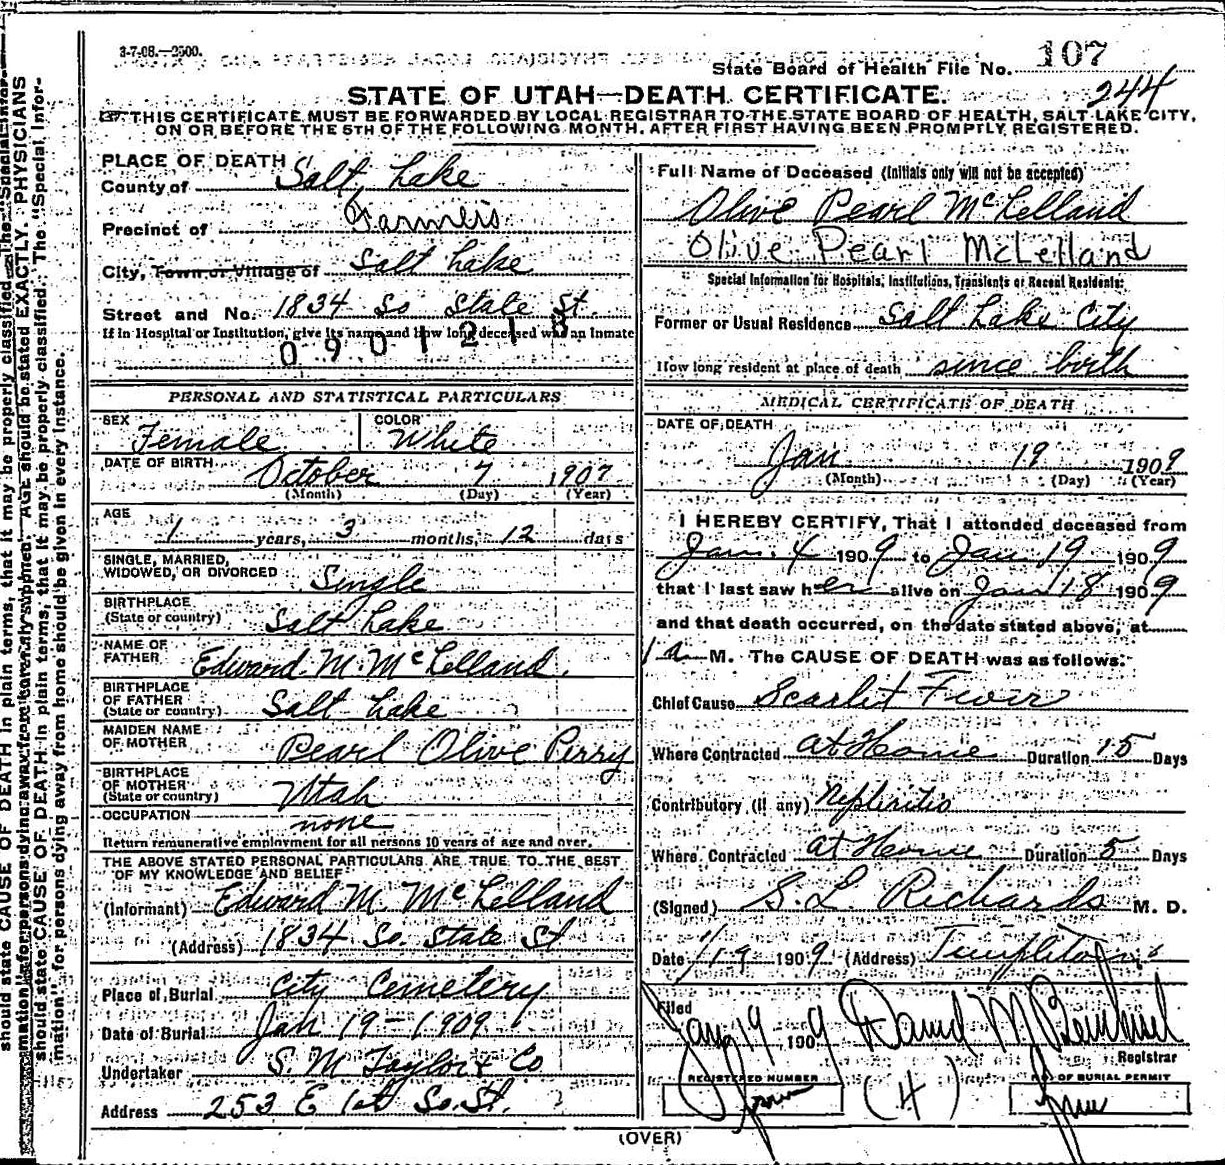 3-7-08.—2500.
State Board of Health File No. 107
244
STATE OF UTAH—DEATH CERTIFICATE.
THIS CERTIFICATE MUST BE FORWARDED BY LOCAL REGISTRAR TO THE STATE BOARD OF HEALTH, SALT LAKE CITY,
ON OR BEFORE THE 5TH OF THE FOLLOWING MONTH, AFTER FIRST HAVING BEEN PROMPTLY REGISTERED.
PLACE OF DEATH
County of Salt Lake
Precinct of Farmers
City, Town or Village of Salt Lake
Street and No. 1834 So State St.
If in Hospital or Institution, give its name and how long deceased was an Inmate
0901218
PERSONAL AND STATISTICAL PARTICULARS
SEX Female COLOR White
DATE OF BIRTH October 7 1907
(Month) (Day) (Year)
AGE
1 years, 3 months, 12 days
SINGLE, MARRIED,
WIDOWED, OR DIVORCED Single
BIRTHPLACE
(State or country) Salt Lake
NAME OF
FATHER Edward M. McLelland.
BIRTHPLACE
OF FATHER
(State or country) Salt Lake
MAIDEN NAME
OF MOTHER Pearl Olive Perry
BIRTHPLACE
OF MOTHER
(State or country) Utah
OCCUPATION none
Return remunerative employment for all persons 10 years of age and over.
THE ABOVE STATED PERSONAL PARTICULARS ARE TRUE TO THE BEST
OF MY KNOWLEDGE AND BELIEF
(Informant) Edward M. McLelland
(Address) 1834 So. State St
Place of Burial City Cemetery
Date of Burial Jan 19-1909
Undertaker S. M. Taylor & Co
Address 253 E 1st So. St.
Full Name of Deceased (Initials only will not be accepted)
Olive Pearl McLelland
Olive Pearl McLelland
Special Information for Hospitals, Institutions, Transients or Recent Residents:
Former or Usual Residence Salt Lake City
How long resident at place of death since birth
MEDICAL CERTIFICATE OF DEATH
DATE OF DEATH
Jan 19 1909
(Month) (Day) (Year)
I HEREBY CERTIFY, That I attended deceased from
Jan. 4 1909 to Jan 19 1909
that I last saw her alive on Jan 18 1909
and that death occurred, on the date stated above, at
1 a M. The CAUSE OF DEATH was as follows:
Chief Cause Scarlet Fever
Where Contracted at Home Duration 15 Days
Contributory (if any) Nephritis
Where Contracted at Home Duration 5 Days
(Signed) S. L. Richards M. D.
Date 1/19 1909 (Address) Templeton
Filed
Jan 19 1909 David M
Registrar
REGISTERED NUMBER (4) NO. OF BURIAL PERMIT
(OVER)
should state CAUSE OF DEATH in plain terms, that it may be properly classified. The "Special Infor-
should be stated EXACTLY. PHYSICIANS
should state CAUSE OF DEATH in plain terms, that it may be properly classified. The "Special Infor-
mation" for persons dying away from home should be given in every instance.